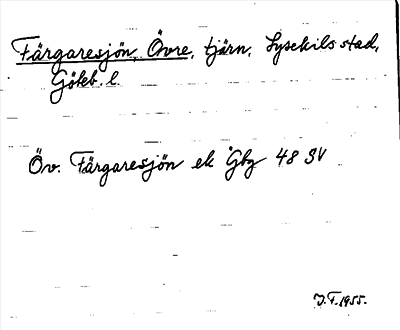 Färgaresjön, Övre, tjärn, Lysekils stad,
Göteb. l.
Öv. Färgaresjön ek Gbg 48 SV
J.F. 1955.